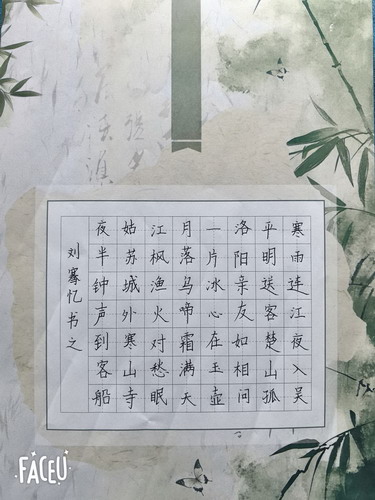 寒雨连江夜入吴
平明送客楚山孤
洛阳亲友如相问
一片冰心在玉壶
月落乌啼霜满天
江枫渔火对愁眠
姑苏城外寒山寺
夜半钟声到客船
刘骞忆书之
FACEU